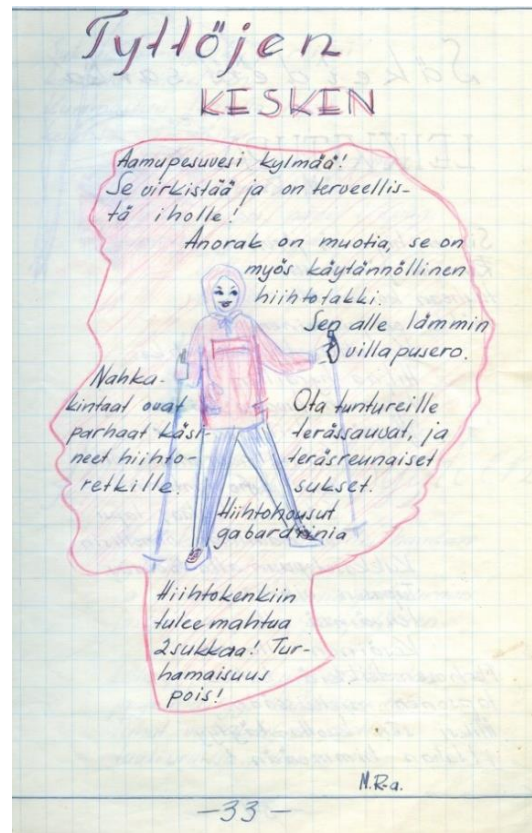 Tyttöjen
KESKEN
Aamupesuvesi kylmää!
Se virkistää ja on terveellis-
tä iholle!
Anorak on muotia, se on
myös käytännöllinen
hiihtotakki.
Sen alle lämmin
villapusero.
Nahka-
kintaat ovat
parhaat käsi-
neet hiihto-
retkille.
Ota tuntureille
terässauvat, ja
teräsreunaiset
sukset.
Hiihtohousut
gabardiinia
Hiihtokenkiin
tulee mahtua
2 sukkaa! Tur-
hamaisuus
pois!
M.R-a.
-33-